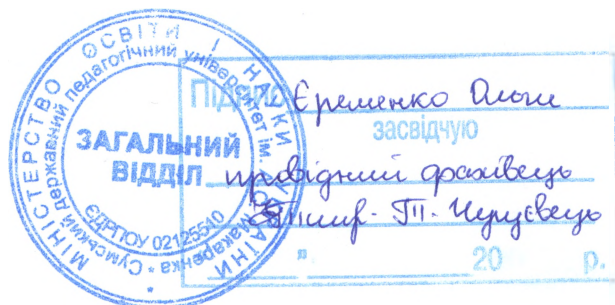 МІНІСТЕРСТВО ОСВІТИ І НАУКИ УКРАЇНИ
Сумський державний педагогічний університет ім. Макаренка
ЄДРПОУ 02125510
ЗАГАЛЬНИЙ
ВІДДІЛ
ПІДПИС Єременко Ольги
засвідчую
провідний фахівець
" 20 р.